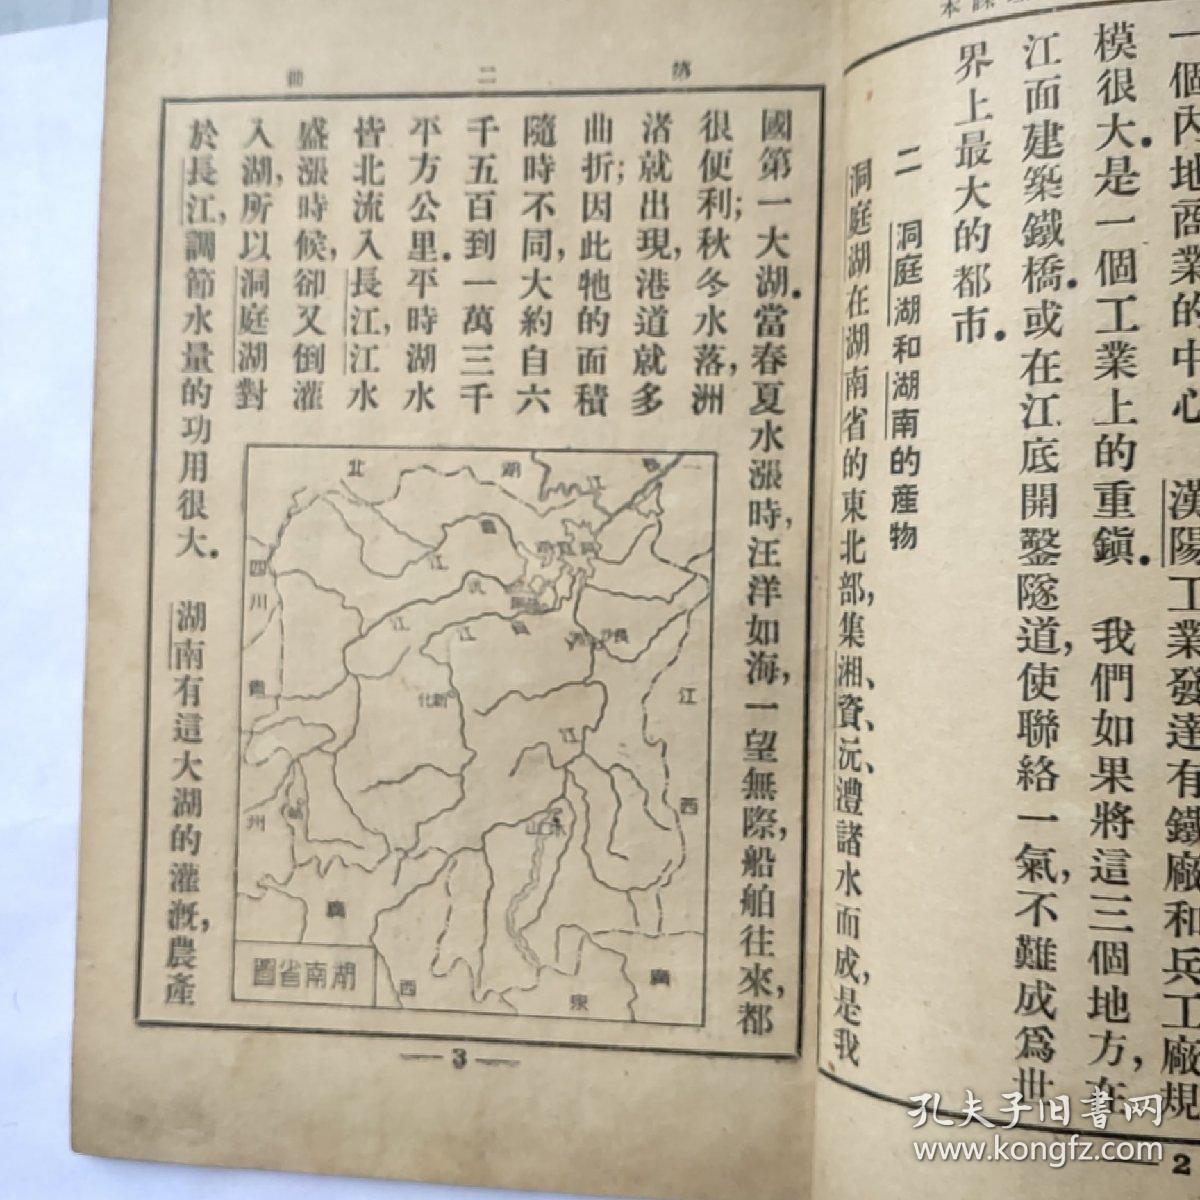 課本
一個內地商業的中心　漢陽工業發達有鐵廠和兵工廠規
模很大.是一個工業上的重鎭.　我們如果將這三個地方,在
江面建築鐵橋.或在江底開鑿隧道,使聯絡一氣,不難成爲世
界上最大的都市.
二　洞庭湖和湖南的產物
洞庭湖在湖南省的東北部,集湘、資、沅、澧諸水而成,是我
2
第二冊
國第一大湖.當春夏水漲時,汪洋如海,一望無際,船舶往來,都
很便利;秋冬水落,洲
渚就出現,港道就多
曲折;因此牠的面積
隨時不同,大約自六
千五百到一萬三千
平方公里.平時湖水
皆北流入長江,江水
盛漲時候,卻又倒灌
入湖,所以洞庭湖對
於長江,調節水量的功用很大.　湖南有這大湖的灌漑,農產
湖北
江
四川
江
沅
江
資
江
長沙
新化
江
江西
貴州
衡山
廣西
廣東
湖南省圖
3
孔夫子旧書网
www.kongfz.com